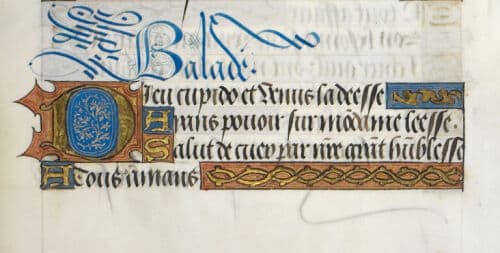 Balade.
Dieu cupido et Venus la deesse
Aians pouoir sur mōdaine leesse.
Salut de cuer par nr̄e grant hūblesse
A tous amans